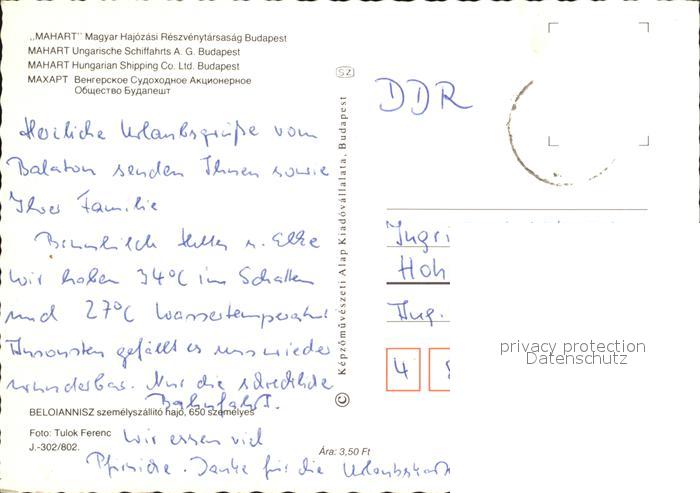 „MAHART" Magyar Hajózási Részvénytársaság Budapest
MAHART Ungarische Schiffahrts A. G. Budapest
MAHART Hungarian Shipping Co. Ltd. Budapest
МАХАРТ Венгерское Судоходное Акционерное
Общество Будапешт
Herzliche Urlaubsgrüße vom
Balaton senden Ihnen sowie
Ihrer Familie
Brunhilde u. Elke
Wir haben 34°C im Schatten
und 27°C Wassertemperatur
Ansonsten gefällt es uns wieder
wunderbar. Nur die schreckliche
Bahnfahrt.
BELOIANNISZ személyszállító hajó, 650 személyes
Foto: Tulok Ferenc
J.-302/802.
Wir essen viel
Pfirsiche. Danke für die Urlaubskarte
Ára: 3,50 Ft
SZ
© Képzőművészeti Alap Kiadóvállalata, Budapest
DDR
Ingri
Hoh
Aug.
4
privacy protection
Datenschutz